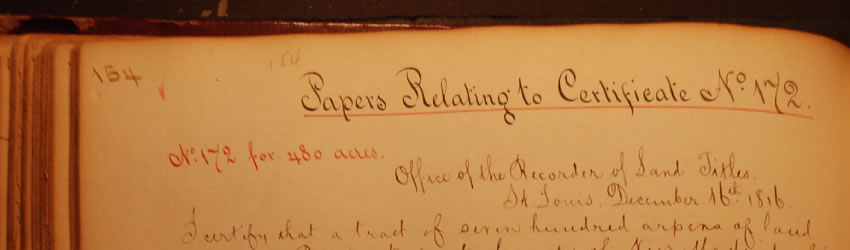 154
154
Papers Relating to Certificate No. 172.
No. 172 for 480 acres.
Office of the Recorder of Land Titles.
St Louis. December 16th. 1816.
I certify that a tract of seven hundred arpens of land